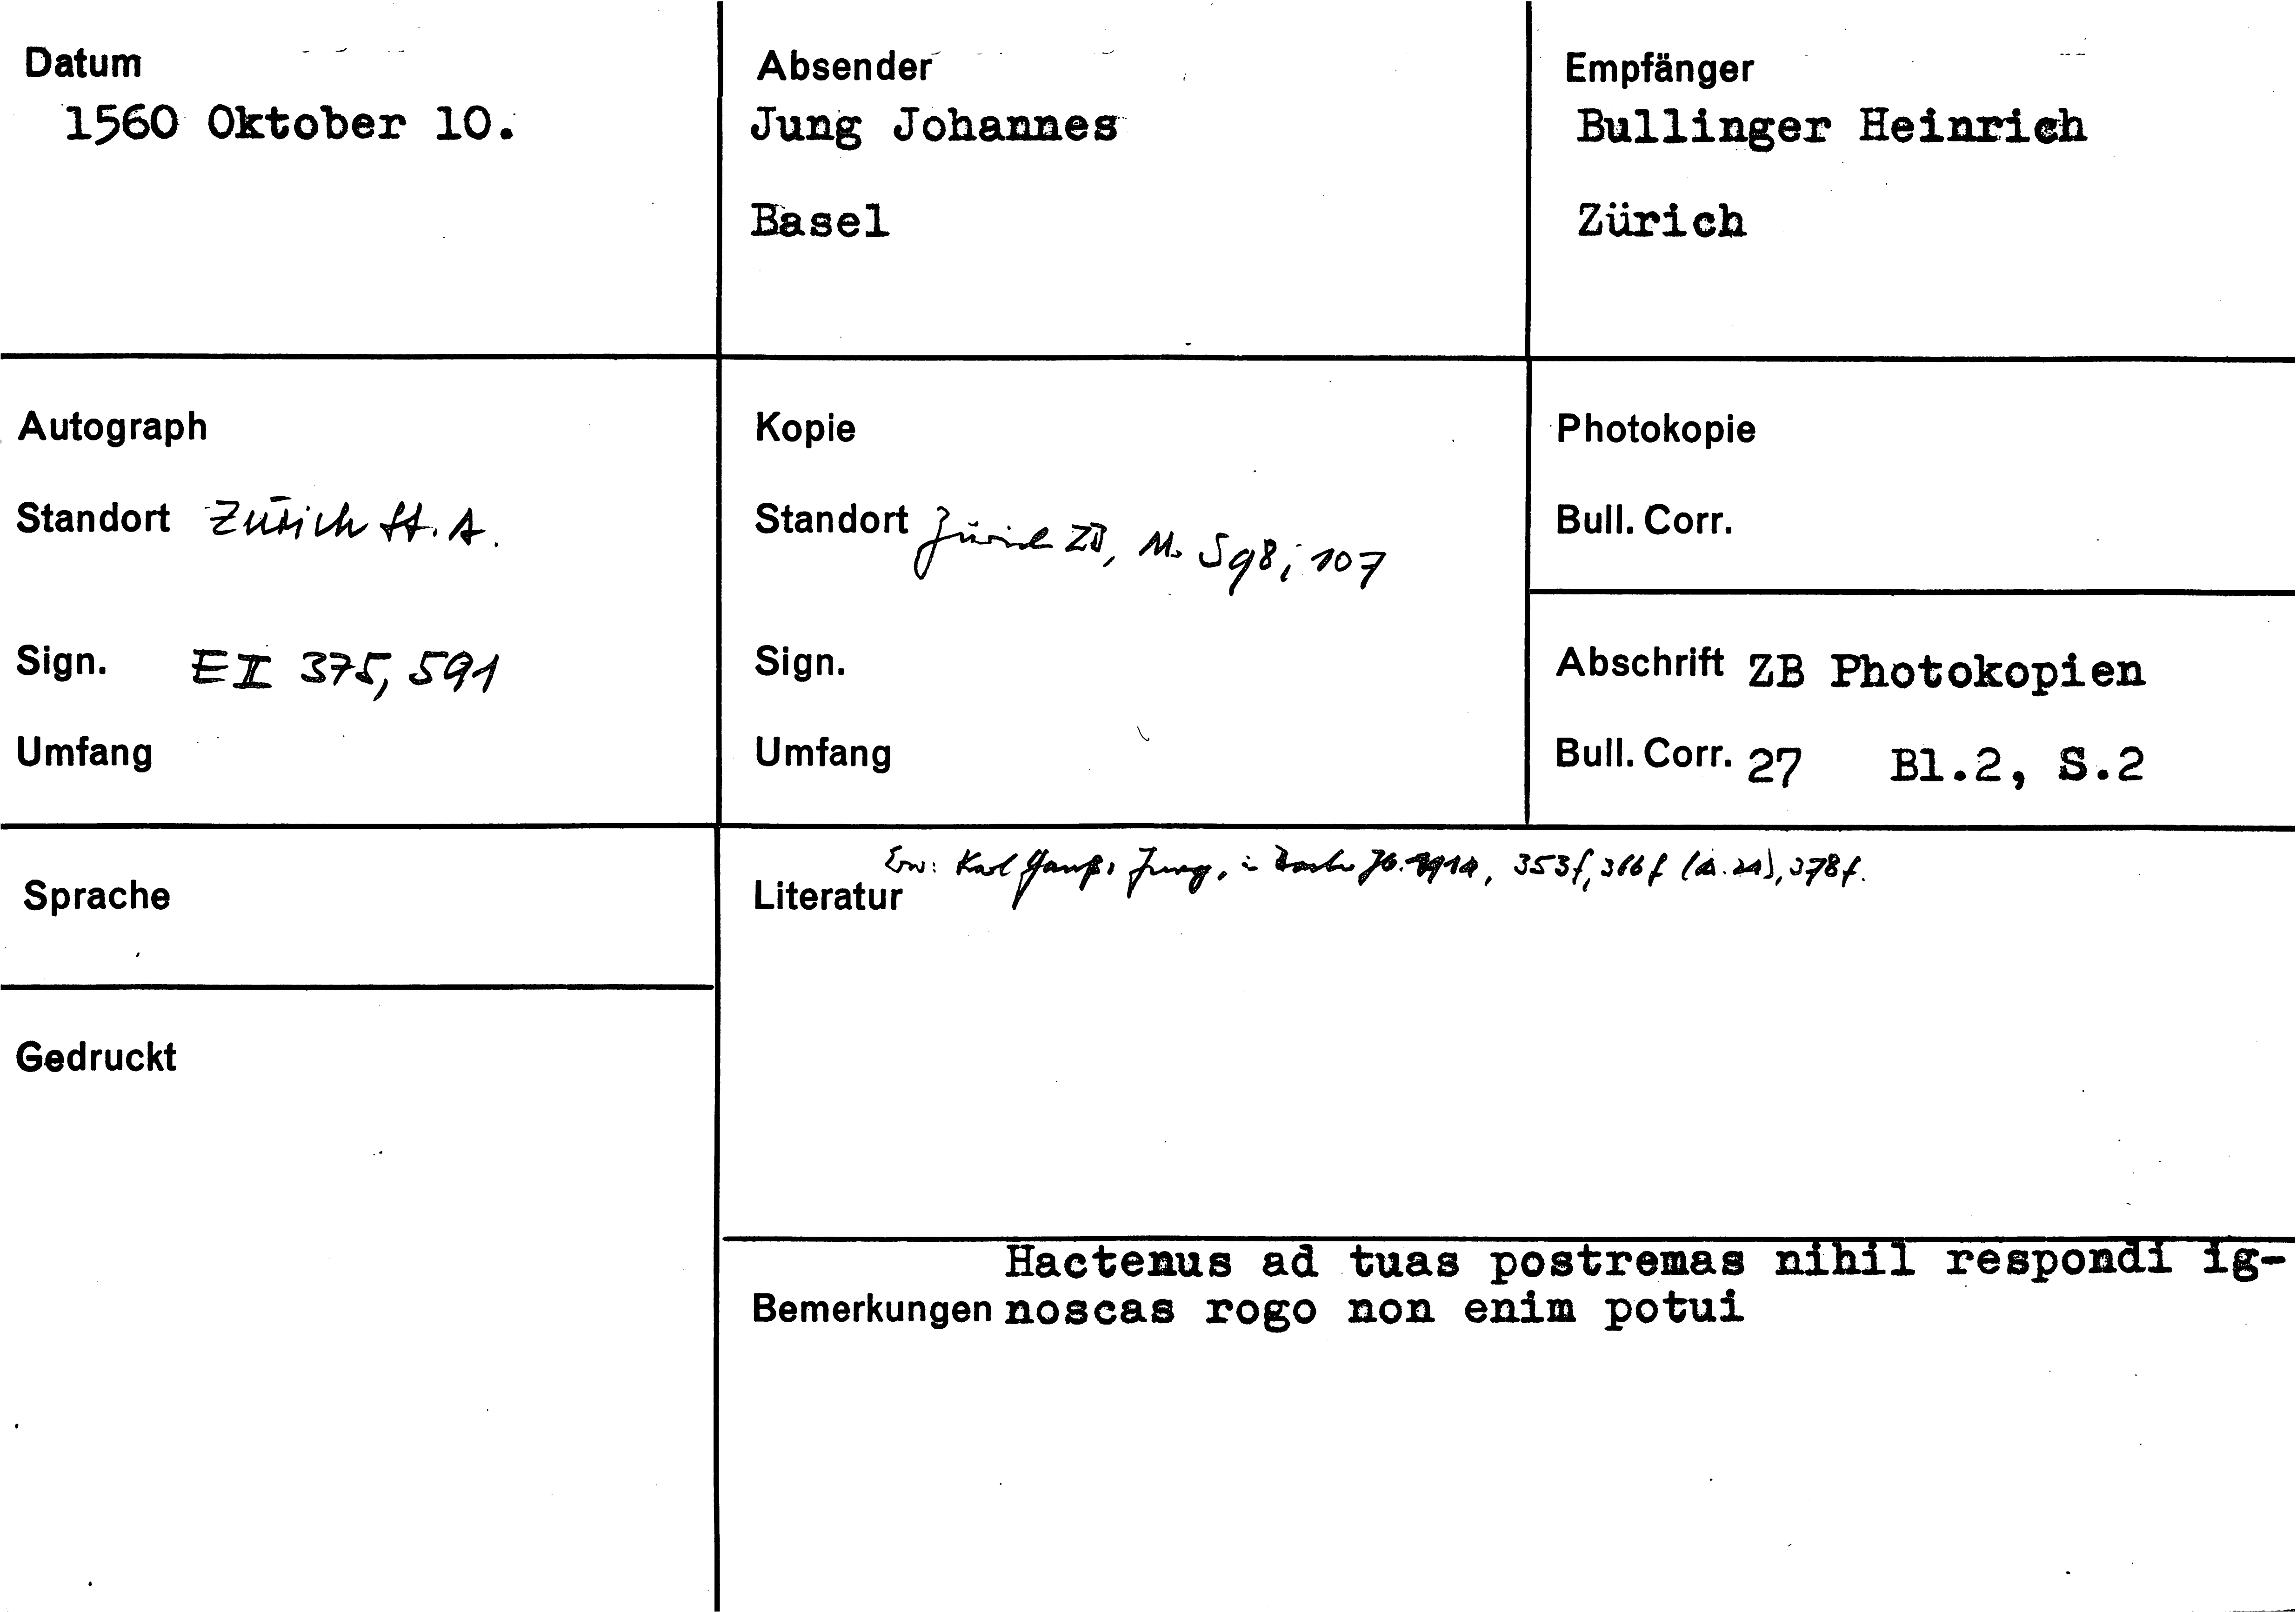 Datum
1560 Oktober 10.
Absender
Jung Johannes
Basel
Empfänger
Bullinger Heinrich
Zürich
Autograph
Standort Zürich St. A.
Sign. E II 375, 591
Umfang
Kopie
Standort Zürich ZB, Ms S 98; 107
Sign.
Umfang
Photokopie
Bull. Corr.
Abschrift ZB Photokopien
Bull. Corr. 27 Bl.2, S.2
Sprache
Gedruckt
Literatur Erw: Karl Gauß, Jung, in Jb. 353f, 366f 378f.
Hactenus ad tuas postremas nihil respondi ig-
Bemerkungen noscas rogo non enim potui